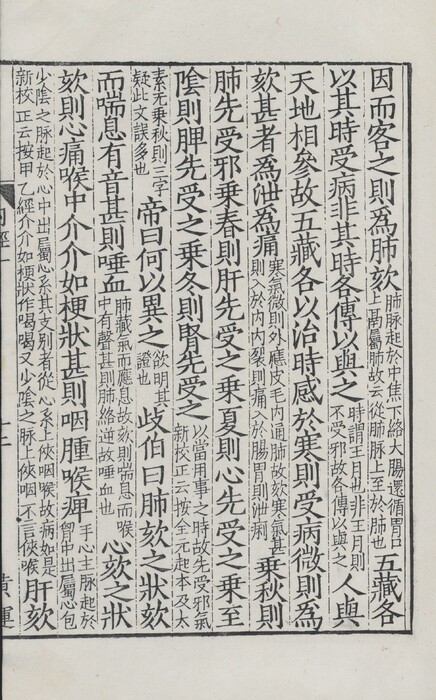 因而客之則為肺欬肺脉起於中焦下絡大腸還循胃口上鬲屬肺故云從肺脉上至於肺也五藏各
以其時受病非其時各傳以與之時謂王月也非王月則不受邪故各傳以與之人與
天地相參故五藏各以治時感於寒則受病微則為
欬甚者為泄為痛寒氣微則外應皮毛內通肺故欬寒氣甚則入於內內裂則痛入於腸胃則泄痢乘秋則
肺先受邪乘春則肝先受之乘夏則心先受之乘至
陰則脾先受之乘冬則腎先受之以當用事之時故先受邪氣新校正云按全元起本及太
素无乘秋則三字疑此文誤多也帝曰何以異之欲明其證也歧伯曰肺欬之狀欬
而喘息有音甚則唾血肺藏氣而應息故欬則喘息而喉中有聲甚則肺絡逆故唾血也心欬之狀
欬則心痛喉中介介如梗狀甚則咽腫喉痺手心主脉起於胷中出屬心包
少陰之脉起於心中出屬心系其支别者從心系上俠咽喉故病如是新校正云按甲乙經介介如梗狀作喝喝又少陰之脉上俠咽不言俠喉肝欬